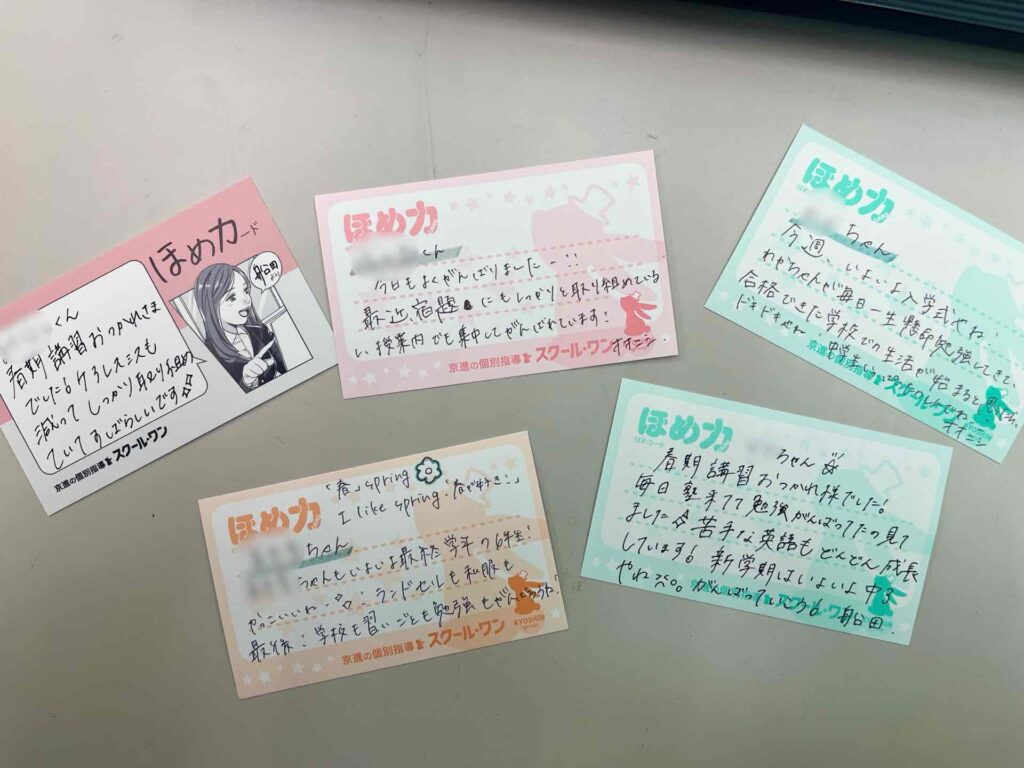 ほめカード
船田
より
くん
春期講習おつかれさま
でした！ケアレスミスも
減って しっかり取り組め
ていてすばらしいです
京進の個別指導 スクール・ワン
ほめ力
くん
今日もよくがんばりましたー!!
最近、宿題にもしっかりと取り組めている
し、授業内でも集中してがんばれています！
京進の個別指導 スクール・ワン
オオニシ
ほめ力
ちゃん
今週、いよいよ入学式やね
毎日一生懸命勉強してきて、
合格できた学校での生活が始まると思うと、
ドキドキやね
京進の個別指導 スクール・ワン
オオニシ
KYOSHIN
「春」spring
I like spring.「春が好き！」
ほめ力
ちゃん
ちゃんもいよいよ最終学年の6年生！
かっこいいねー ランドセルも私服も
最後！学校も習いごとも勉強もがんばろうね！
京進の個別指導 スクール・ワン
KYOSHIN
ほめ力
ほめカード
ちゃん
春期講習おつかれ様でした！
毎日塾来てて勉強がんばってたの見て
ました 苦手な英語もどんどん成長
しています！新学期はいよいよ中3
やね。がんばっていこう！ 船田